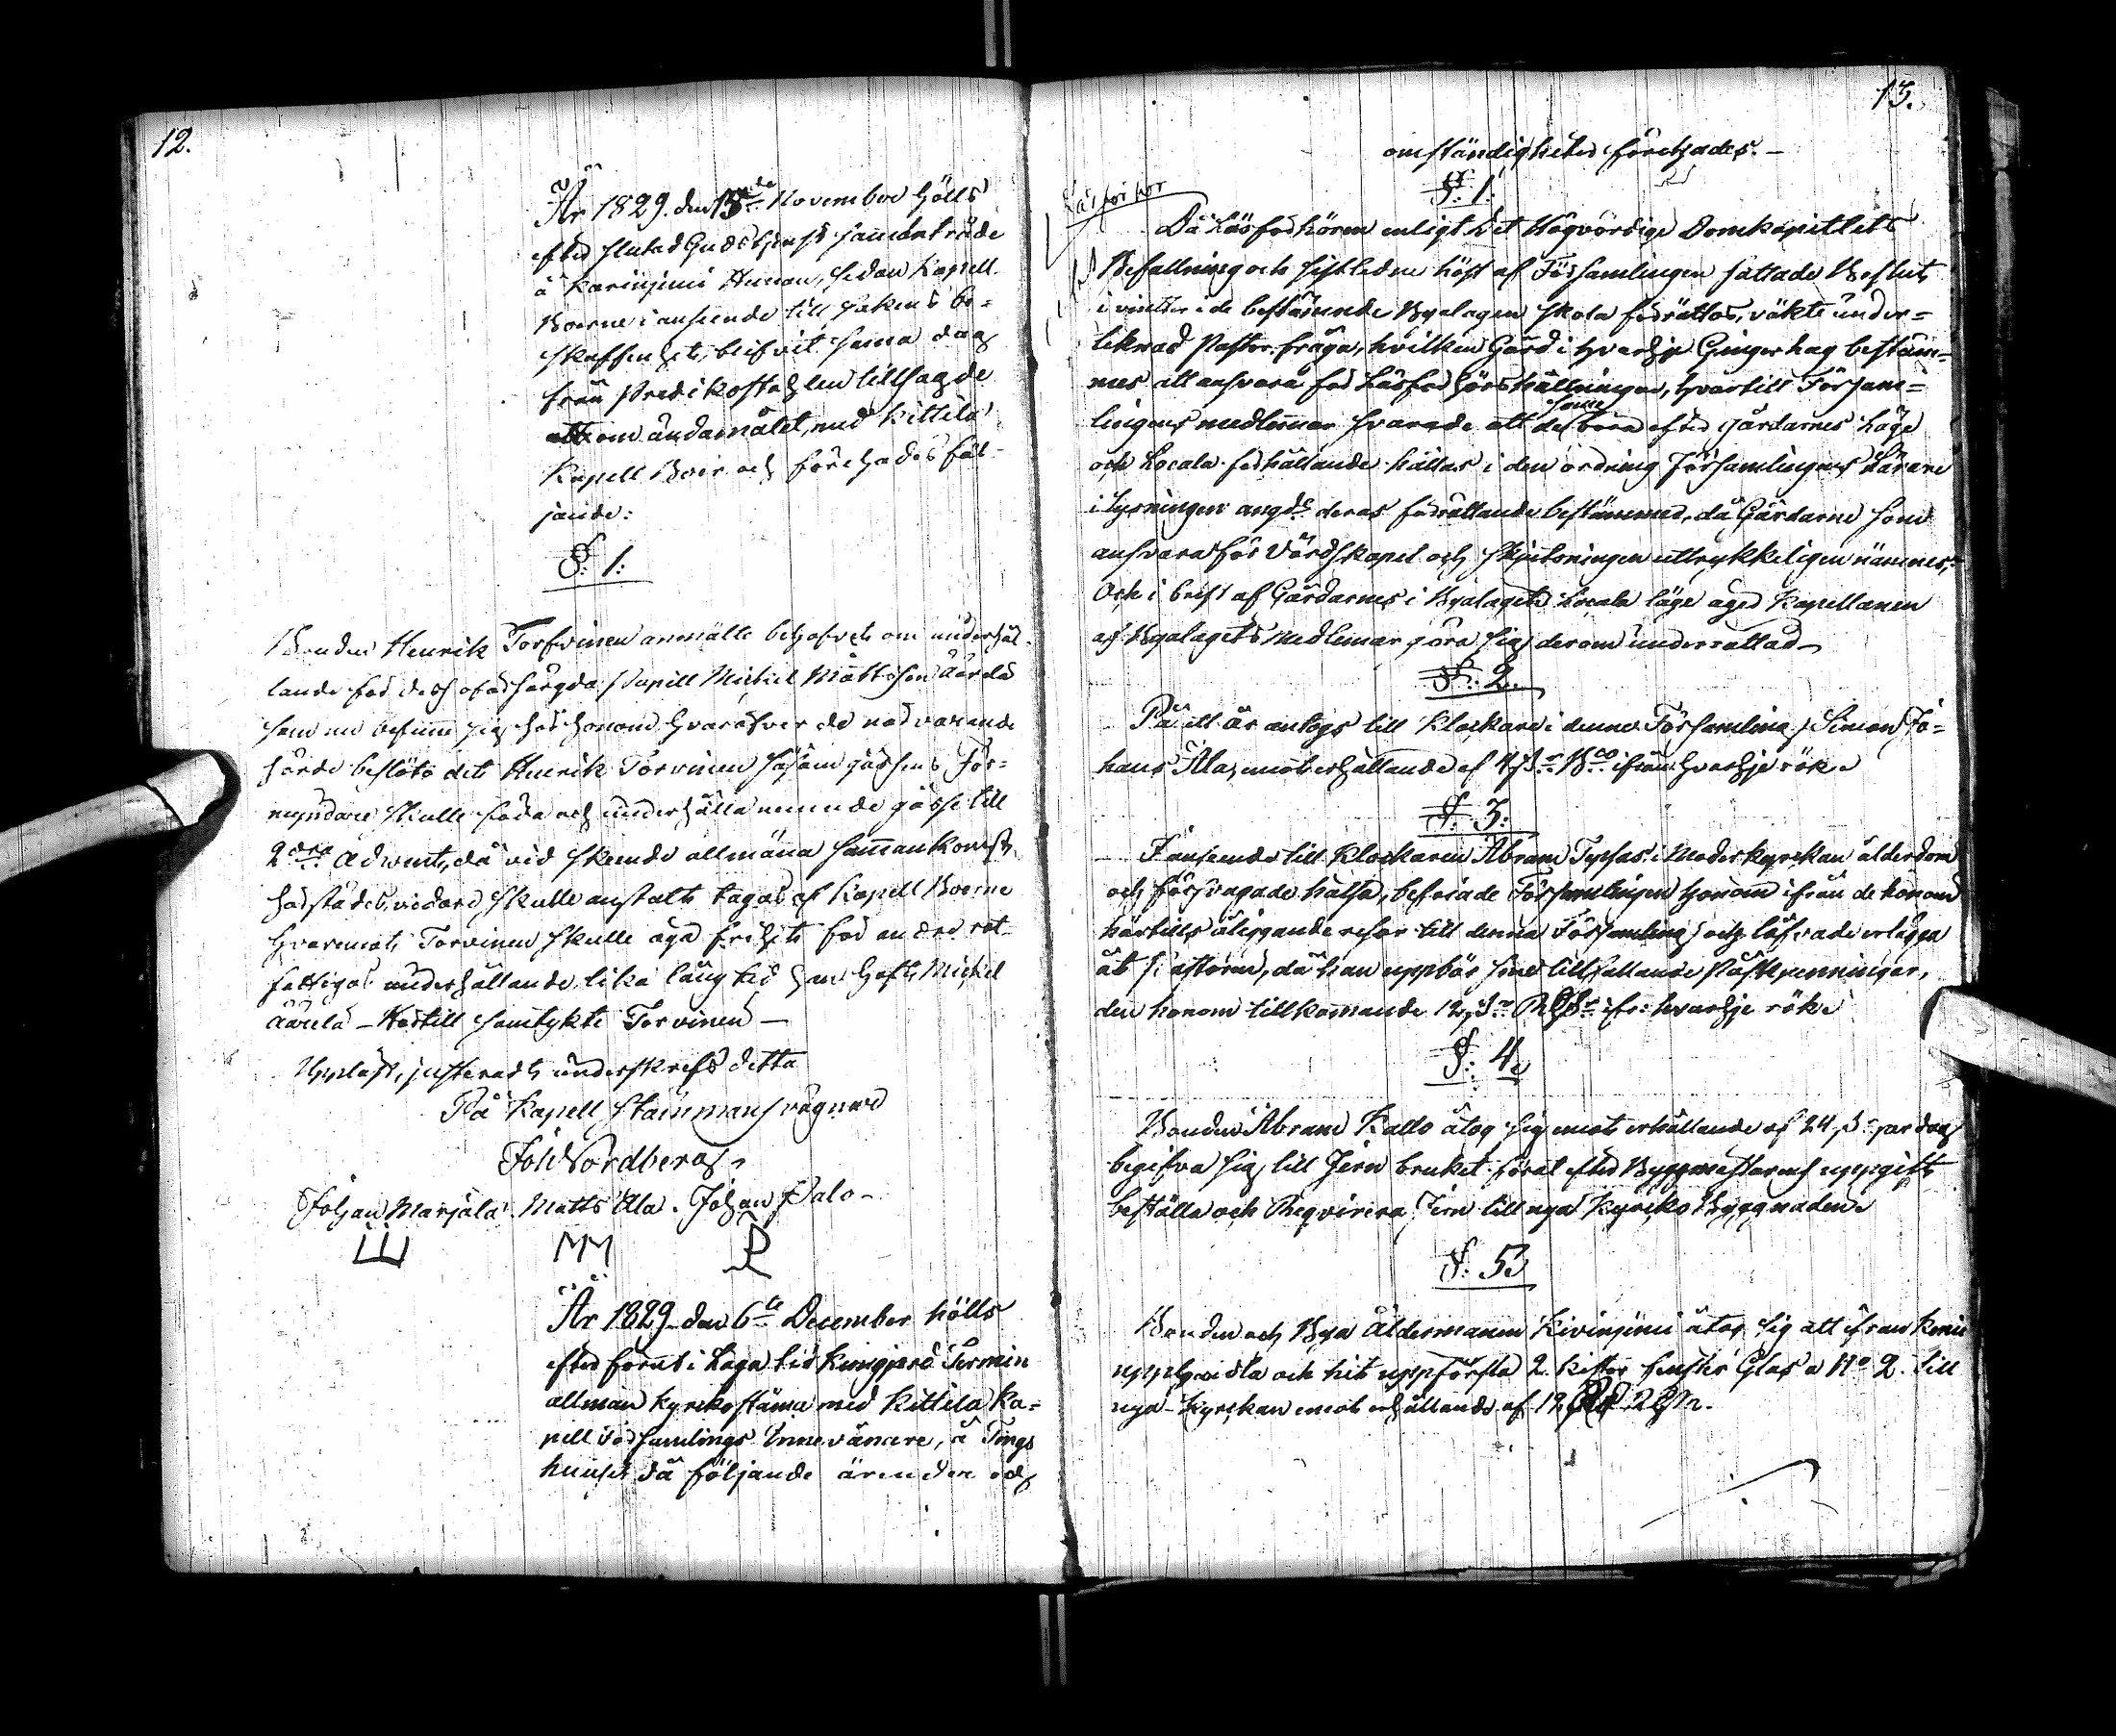 12.
År 1829. den 15de November hölls
efter slutad Gudstjenst sammanträde
å Karinjemi Heman, sedan Kapell
Boerne i anseende till sakens be-
skaffenhet, blifvit sama dag
från Predikostohlen tillsagde
om ändamålet, med Kittilä
Kapell Boer och företogs föl-
jande:
§: 1:
Bonden Henrik Torfvinen anmälte behofvet om underhål-
lande för dess oförsörgda Pupill Michel Mattsson Äärelä
som nu befinne sig hos honom hvaröfver de närvarande
hörde beslöts det Henrik Torvinen såsom gossens För-
myndare skulle föda och underhålla nämnde gosse till
2dra Advent, då vid skeende allmäna sammankomst
härstädes, vidare skulle anstalt tagas af Kapell Boerne
hvaremot Torvinen skulle äga frihet för andre rot-
fattigas underhållande lika lång tid han haft Michel
Äärelä - Härtill samtykte Torvinen -
Uppläst, justeradt, underskrefs detta
På Kapell Stämmans vägnar
Joh Nordberg.
Johan Marjala. Matts Ala. Johan Palo-
MM P
År 1829 den 6te December hölls
efter förut i Laga tid kungjord Termin
allmän Kyrkostäma med Kittilä Ka-
pell Församlings Innevånare, å Tings
huuset då följande ärender och
13.
omständigheter företogades.-
Läsförhör
§: 1.
Då Läsförhören enligt Det Högvördige Domkapitlets
Befallning och sistledne höst af Församlingen fattade Beslut
i vinter i de bestämmde Byalagen skola förrättas, väkte under-
teknad Pastor fråga, hvilken Gård i hvardje Gingerhag bestäm-
mes att ansvara för Läsförhörs hållningen, hvartill Försam-
some
lingens medlemmar svarade att de böra efter gårdarnes läge
och Locala förhållande hållas i den ordning Församlingens Lärare
i lysningen angde deras förrättande bestämmer, då Gårdarne som
ansvara för Värdskapet och Skjutsningen uttrykkeligen nämnes,
Och i brist af Gårdarnes i Byalaget Locala läge äger Kapellanen
af Byalagets Medlemar göra sig derom underrättad
§: 2.
På ett år antogs till Klockare i denne Församling Simon Jo-
hans Ala, emot erhållande af 4 ß Bco ifrån hvardje rök.
§: 3:
I anseende till Klockaren Abram Typsas i Moderkyrkan ålderdom
och försvagade hälsa, befriade Församlingen honom ifrån de honom
härtills åliggande resor till denna Församling och låfvade erlägga
åt Pastorn, då han uppbär sine tillfallande Påskpenningar,
den honom tillkomande 12 ß ifr: hvardje rök.
§: 4.
Bonden Abram Kallo åtog sig emot erhållande af 24 ß per dag
begifva sig till Jern bruket förut efter Byggmästarens uppgift
beställa och Reqvirera Jern till nya Kyrko Byggnaden.
§: 5.
Bonden och Bya Åldermannen Kivinjemi åtog sig att ifrån Kemi
upphandla och hit uppforsla 2. kistor fenster Glas a No 2. till
nya Kyrkan emot erhållande af 12